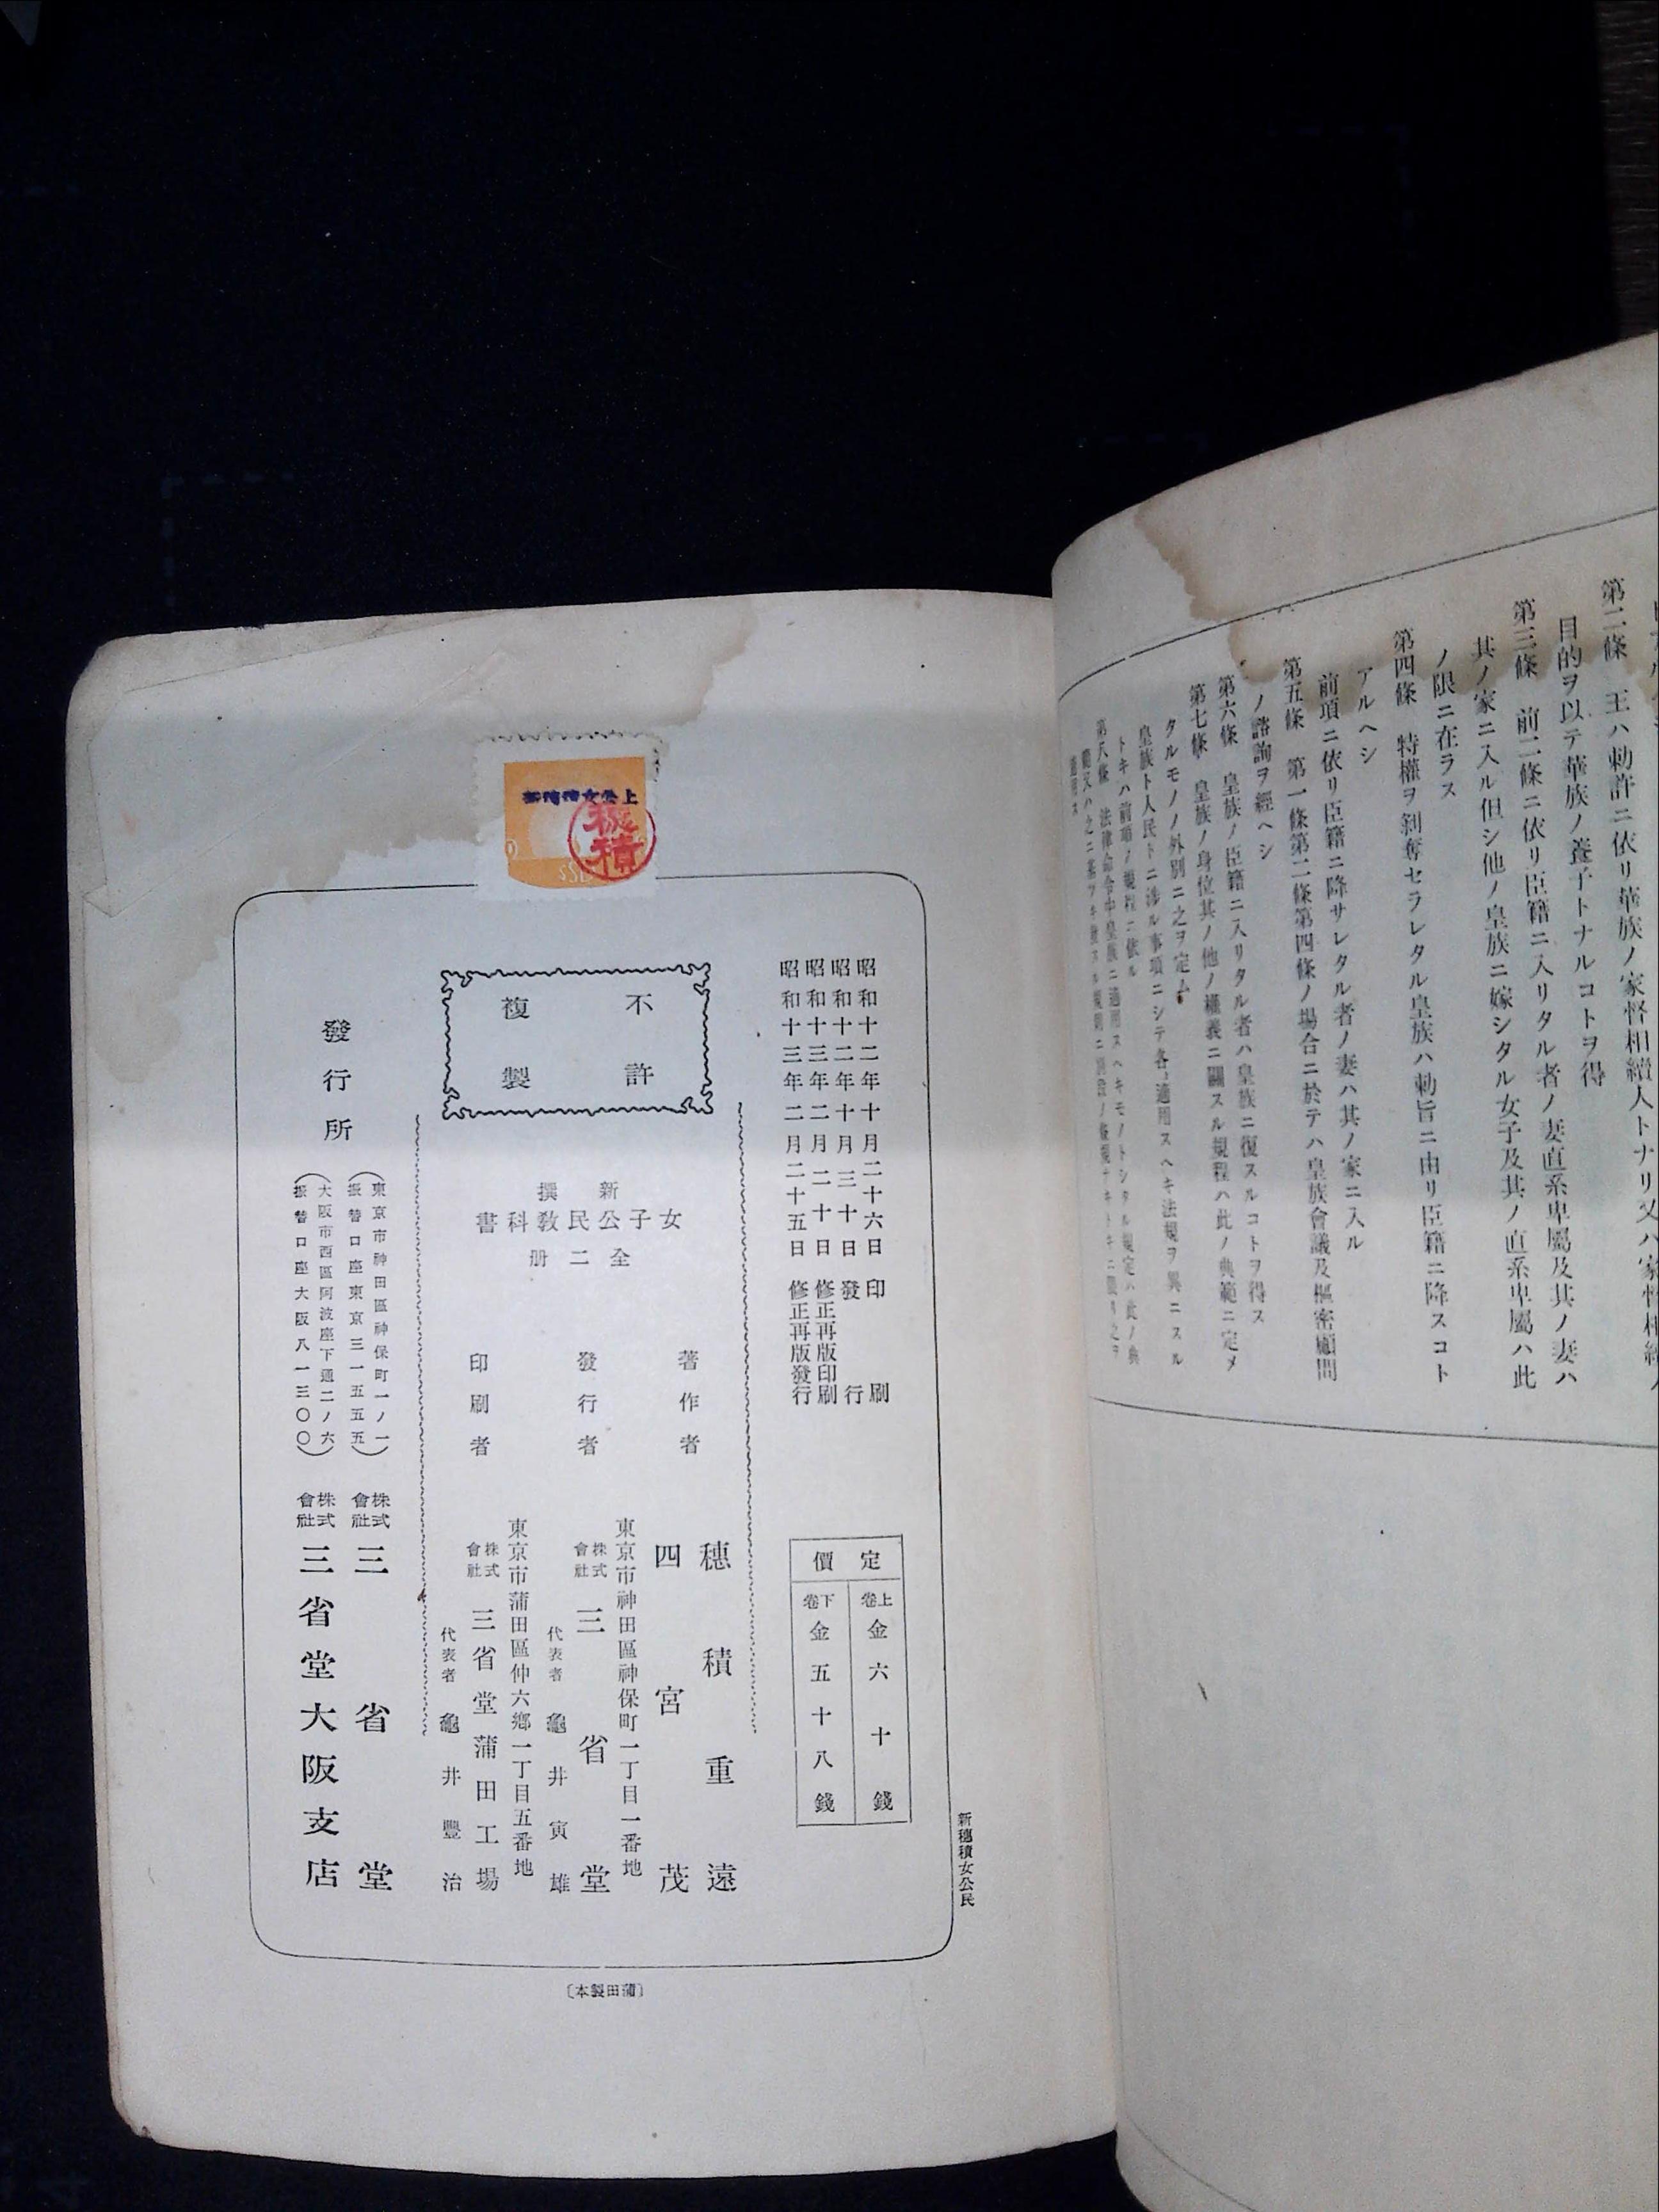 第二條 王ハ勅許ニ依リ華族ノ家督相續人トナリ又ハ家督相續ノ
目的ヲ以テ華族ノ養子トナルコトヲ得
第三條 前二條ニ依リ臣籍ニ入リタル者ノ妻直系卑屬及其ノ妻ハ
其ノ家ニ入ル但シ他ノ皇族ニ嫁シタル女子及其ノ直系卑屬ハ此
ノ限ニ在ラス
第四條 特權ヲ剝奪セラレタル皇族ハ勅旨ニ由リ臣籍ニ降スコト
アルヘシ
前項ニ依リ臣籍ニ降サレタル者ノ妻ハ其ノ家ニ入ル
第五條 第一條第二條第四條ノ場合ニ於テハ皇族會議及樞密顧問
ノ諮詢ヲ經ヘシ
第六條 皇族ノ臣籍ニ入リタル者ハ皇族ニ復スルコトヲ得ス
第七條 皇族ノ身位其ノ他ノ權義ニ關スル規程ハ此ノ典範ニ定メ
タルモノノ外別ニ之ヲ定ム
皇族ト人民トニ涉ル事項ニシテ各〻適用スヘキ法規ヲ異ニスル
トキハ前項ノ規程ニ依ル
第八條 法律命令中皇族ニ適用スヘキモノトシタル規定ハ此ノ典
範又ハ之ニ基ツキ發スル規則ニ別段ノ條規ナキトキニ限リ之ヲ
適用ス
新穗積女公民
昭和十二年十月二十六日 印刷
昭和十二年十月三十日 發行
昭和十三年二月二十日 修正再版印刷
昭和十三年二月二十五日 修正再版發行
定價
上卷 金六十錢
下卷 金五十八錢
新穗積女公上
穗積
不許
複製
新撰
女子公民敎科書
全二册
著作者
穗積重遠
四宮茂
發行者
東京市神田區神保町一丁目一番地
株式會社 三省堂
代表者 龜井寅雄
印刷者
東京市蒲田區仲六鄕一丁目五番地
株式會社 三省堂蒲田工場
代表者 龜井豐治
發行所
(東京市神田區神保町一ノ一
振替口座東京三一五五五)
株式會社 三省堂
(大阪市西區阿波座下通二ノ六
振替口座大阪八一三〇〇)
株式會社 三省堂大阪支店
〔蒲田製本〕